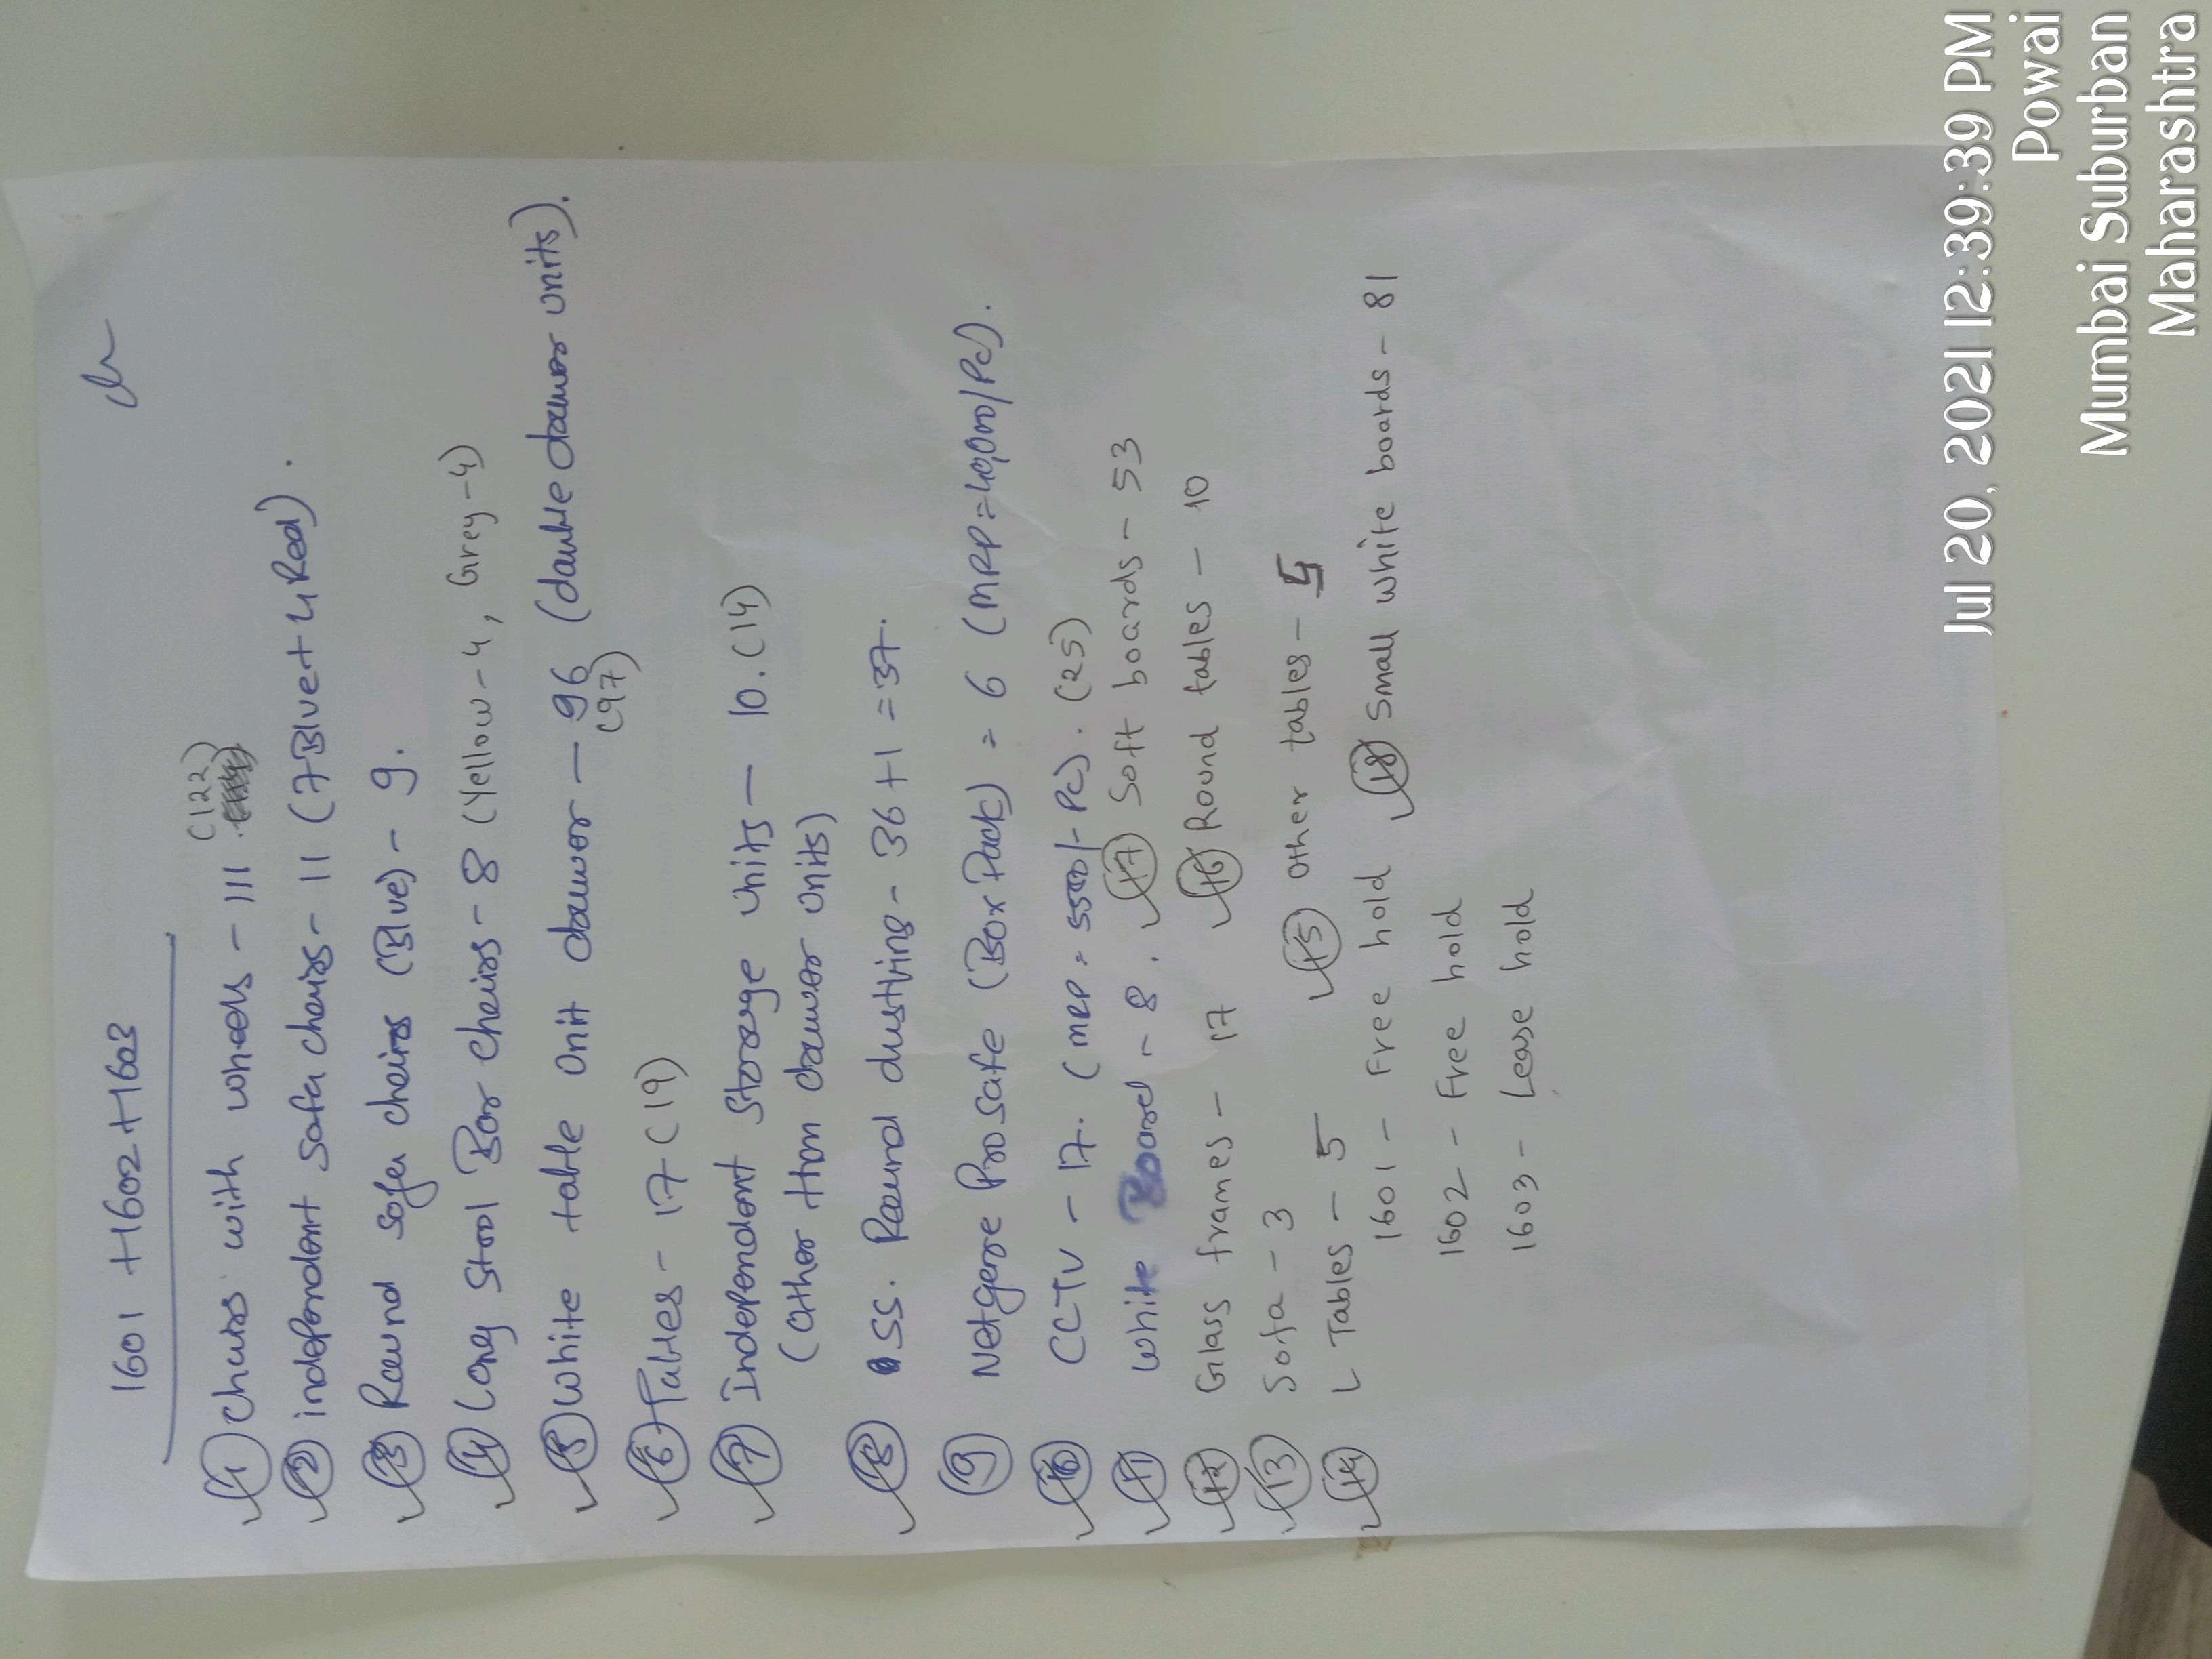 1601 + 1602 + 1603
(122)
1 chairs with wheels - 111
2 independent sofa chairs - 11 (7 Blue + 4 Red).
3 Round sofa chairs (Blue) - 9.
4 Long Stool Bar chairs - 8 (Yellow - 4, Grey - 4)
5 White table unit drawer - 96 (double drawer units).
(97)
6 Tables - 17 (19)
7 Independent Storage units - 10. (14)
(Other than drawer units)
8 SS. Round dustbing - 36 + 1 = 37.
9 Netgere Prosafe (Box Pack) = 6 (MRP = 40,000/Pc).
10 CCTV - 17. (MRP = 5500/- Pc). (25)
11 White Board - 8. 17 Soft boards - 53
12 Glass frames - 17 16 Round tables - 10
13 Sofa - 3 15 other tables - 5
14 L Tables - 5 18 Small white boards - 81
1601 - Free hold
1602 - Free hold
1603 - Lease hold
Jul 20, 2021 12:39:39 PM
Powai
Mumbai Suburban
Maharashtra